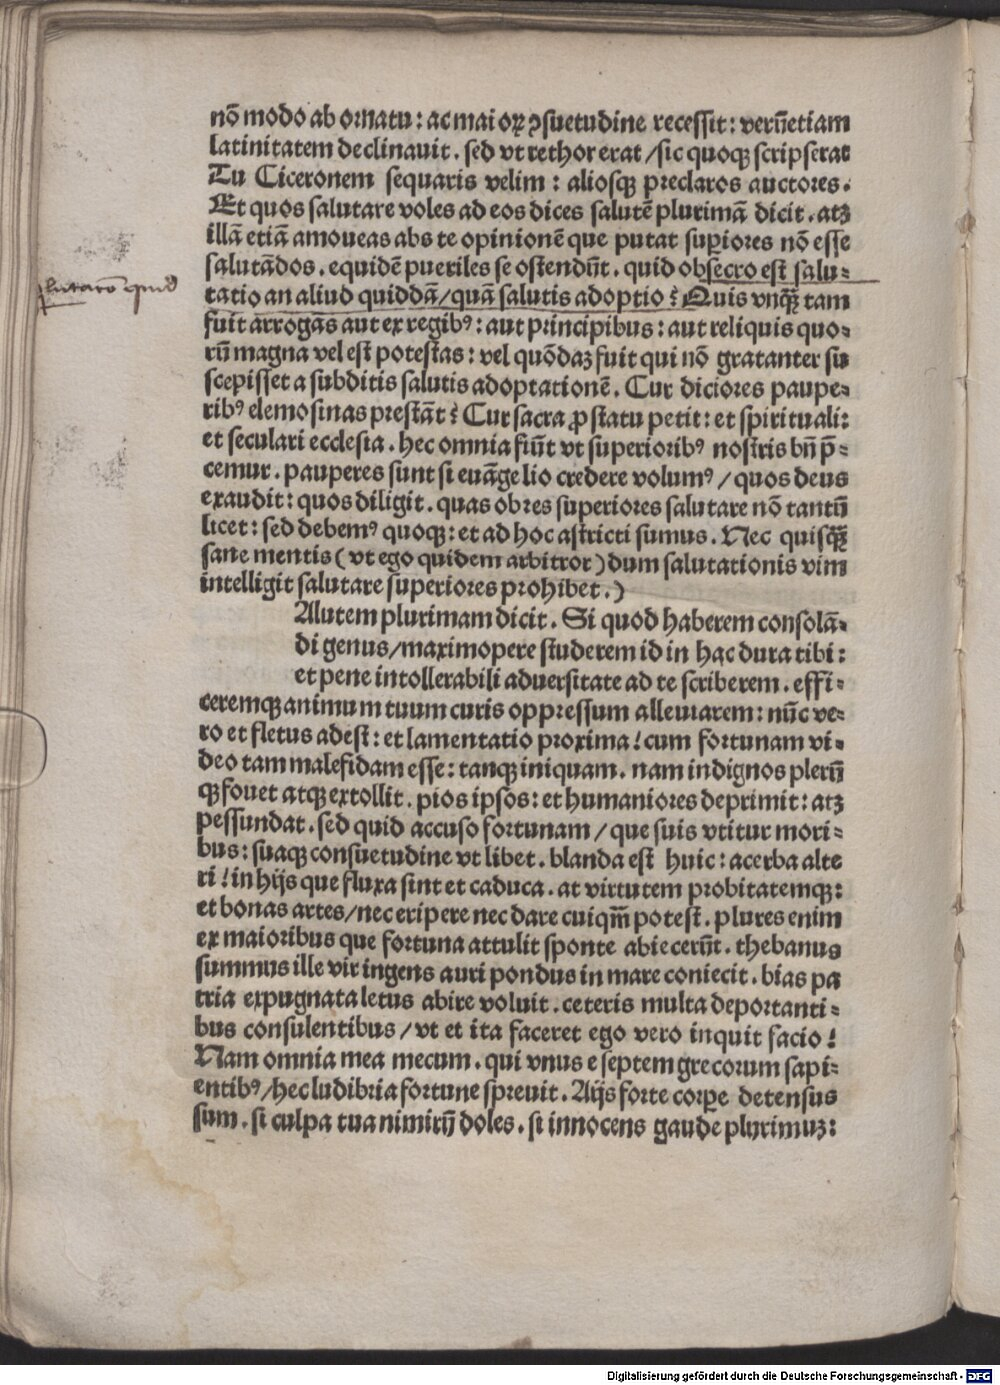 nō modo ab ornatu : ac maiorꝝ ꝯsuetudine recessit : verū etiam
latinitatem declinauit . sed vt rethor erat / sic quoqꝫ scripserat
Tu Ciceronem sequaris velim : aliosqꝫ preclaros auctores .
Et quos salutare voles ad eos dices salutē plurimā dicit . atqꝫ
illā etiā amoueas abs te opinionē que putat supiores nō esse
salutādos . equidē pueriles se ostendūt . quid obsecro est salu-
tatio an aliud quiddā / quā salutis adoptio ? Quis vnqꝫ tam
fuit arrogās aut ex regibꝰ : aut principibus : aut reliquis quo-
rū magna vel est potestas : vel quōdaꝫ fuit qui nō gratanter su
scepisset a subditis salutis adoptationē . Cur diciores paupe-
ribꝰ elemosinas prestāt ? Cur sacra ꝓ statu petit : et spirituali :
et seculari ecclesia . hec omnia fiūt vt superioribꝰ nostris bn̄ p̄-
cemur . pauperes sunt si euāgelio credere volumꝰ / quos deus
exaudit : quos diligit . quas ob res superiores salutare nō tantū
licet : sed debemꝰ quoqꝫ : et ad hoc astricti sumus . Nec quisqꝫ̄
sane mentis ( vt ego quidem arbitror ) dum salutationis vim
intelligit salutare superiores prohibet . )
Alutem plurimam dicit . Si quod haberem consolā-
di genus / maximopere studerem id in hac dura tibi :
et pene intollerabili aduersitate ad te scriberem . effi-
ceremqꝫ animum tuum curis oppressum alleuiarem : nūc ve-
ro et fletus adest : et lamentatio proxima ! cum fortunam vi-
deo tam malefidam esse : tanqꝫ iniquam . nam indignos plerū
qꝫ fouet atqꝫ extollit . pios ipsos : et humaniores deprimit : atqꝫ
pessundat . sed quid accuso fortunam / que suis vtitur mori-
bus : suaqꝫ consuetudine vt libet . blanda est huic : acerba alte
ri ! in hijs que fluxa sint et caduca . at virtutem probitatemqꝫ :
et bonas artes / nec eripere nec dare cuiqm̄ potest . plures enim
ex maioribus que fortuna attulit sponte abiecerūt . thebanus
summus ille vir ingens auri pondus in mare coniecit . bias pa
tria expugnata letus abire voluit . ceteris multa deportanti-
bus consulentibus / vt et ita faceret ego vero inquit facio !
Nam omnia mea mecum . qui vnus e septem grecorum sapi-
entibꝰ / hec ludibria fortune spreuit . Aijs forte corpe detensus
sum . si culpa tua nimirū doles . si innocens gaude plurimuꝫ :
Digitalisierung gefördert durch die Deutsche Forschungsgemeinschaft - DFG